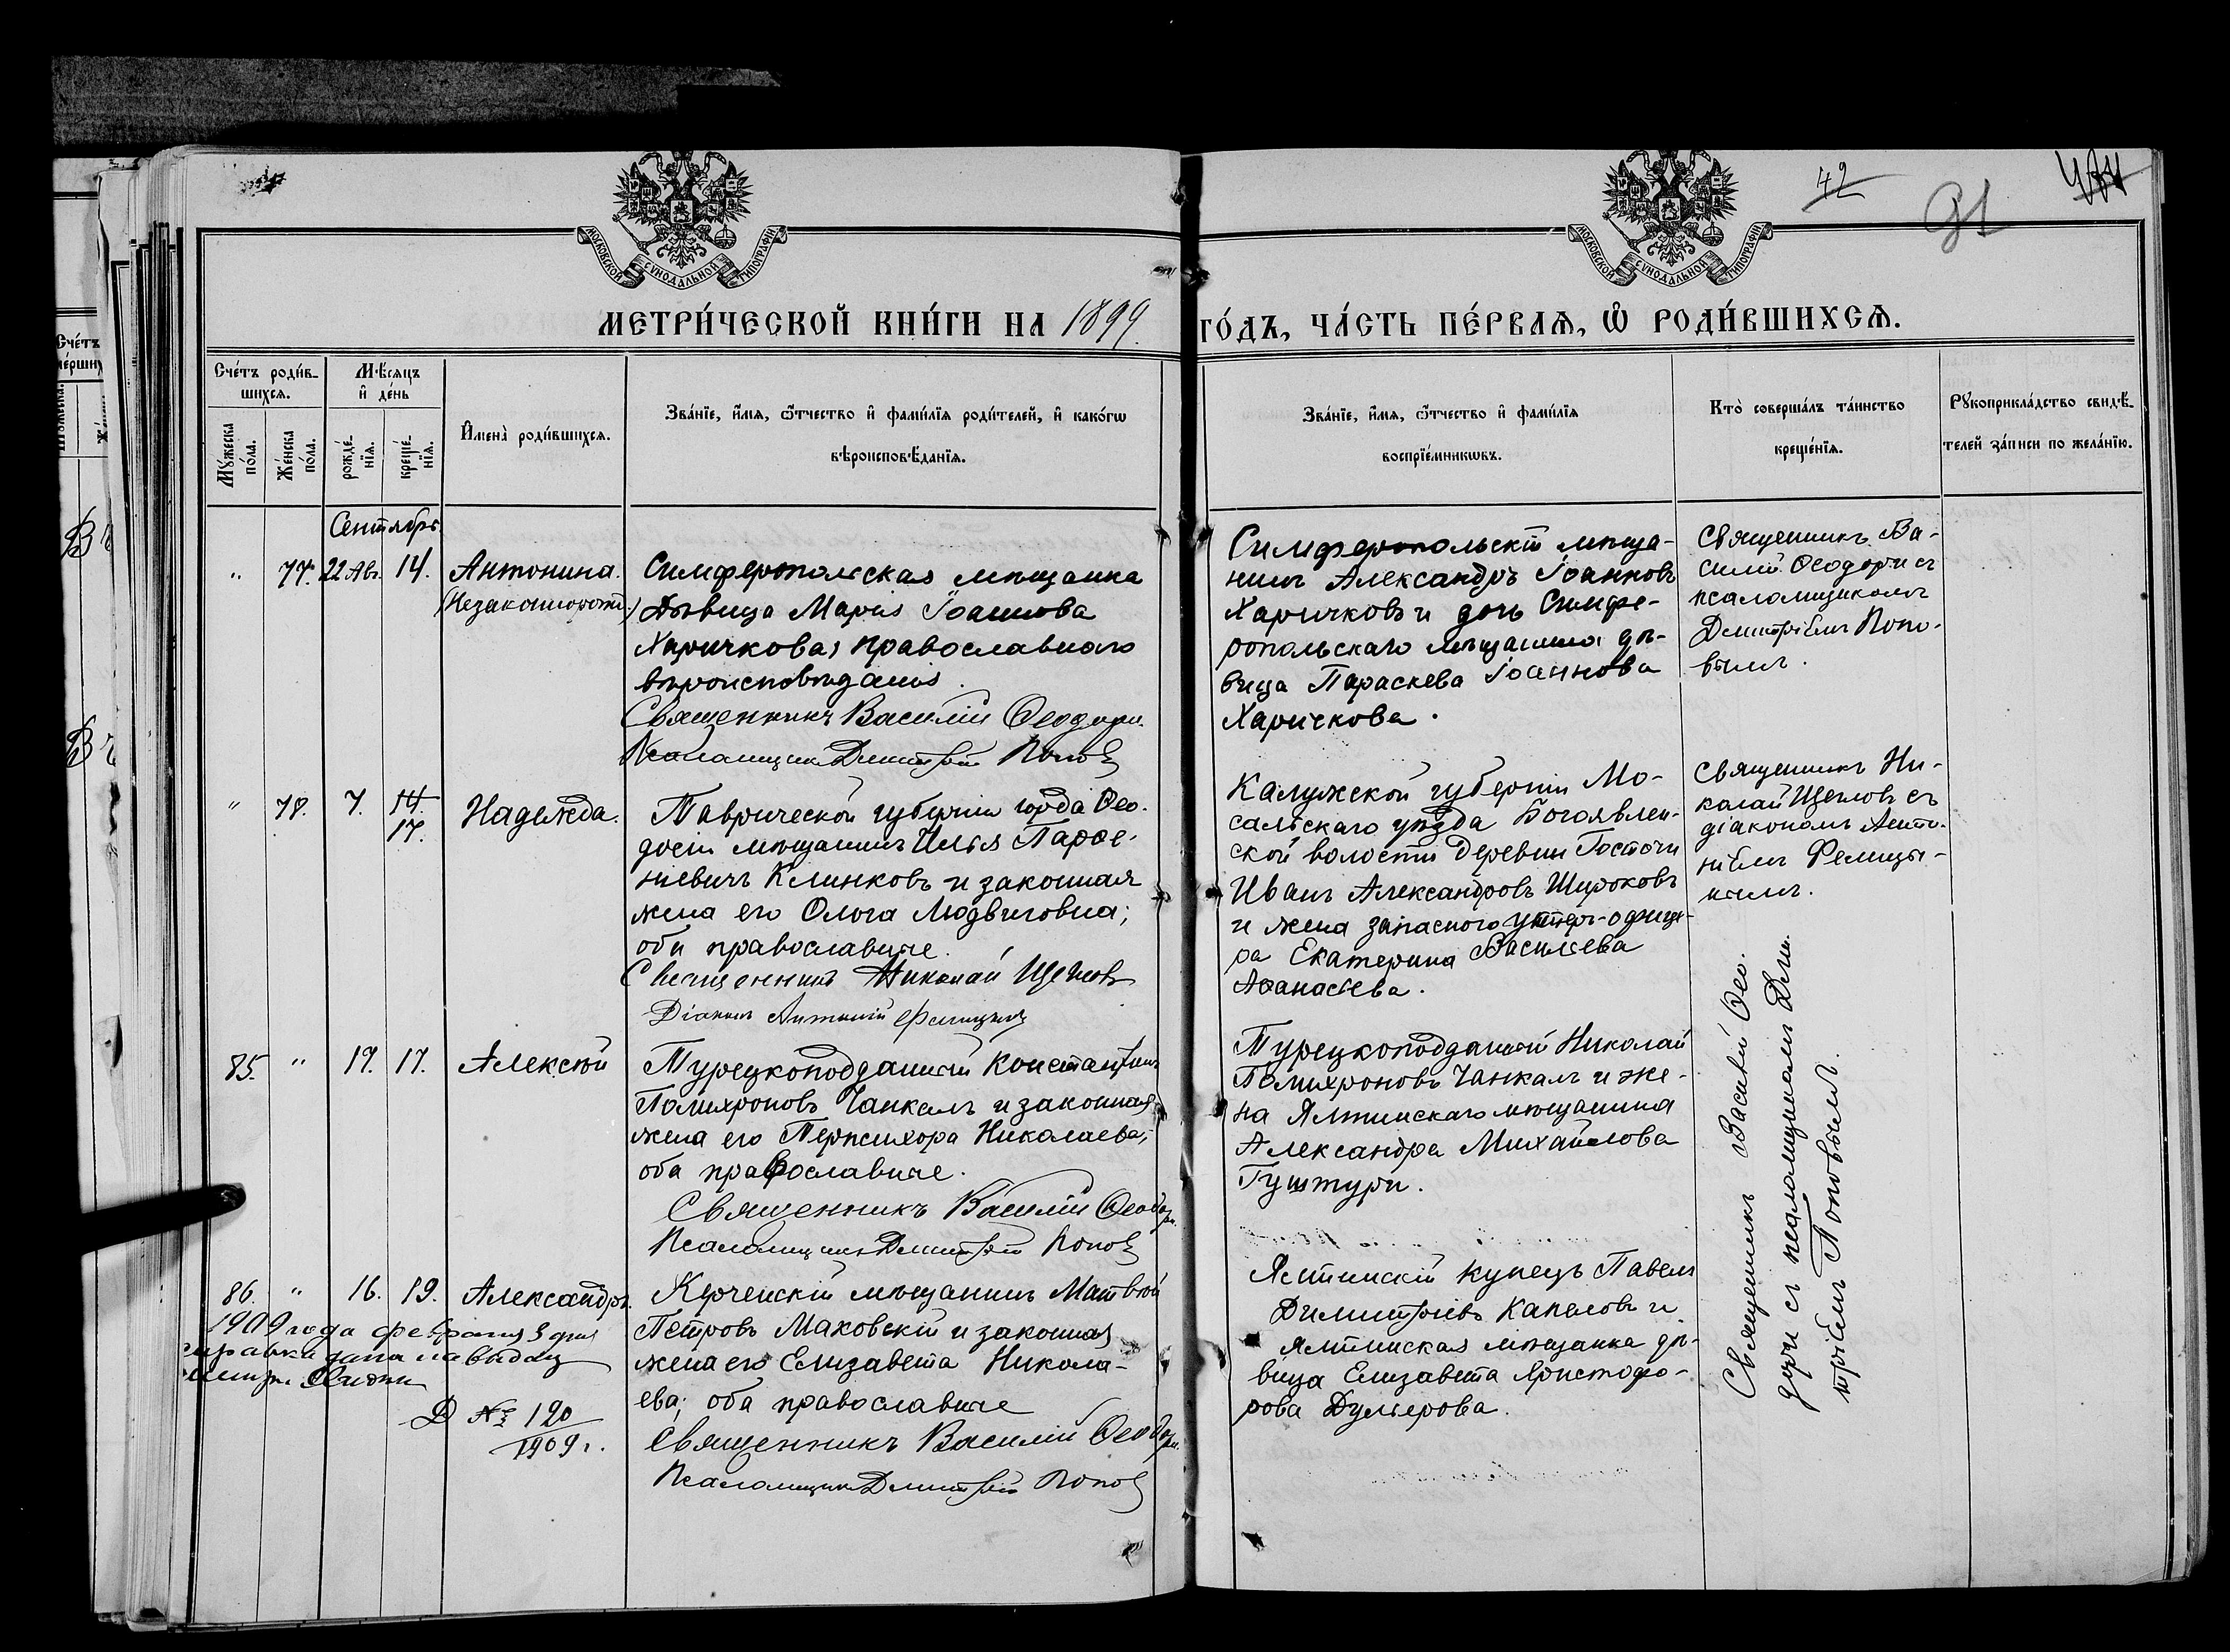 МОСКОВСКОЙ СѴНОДАЛЬНОЙ ТИПОГРАФІИ
МОСКОВСКОЙ СѴНОДАЛЬНОЙ ТИПОГРАФІИ
42
91
МЕТРИ́ЧЕСКОЙ КНИ́ГИ НА 1899. ГО́ДЪ, ЧА́СТЬ ПЕ́РВАЯ, Ѡ РОДИ́ВШИХСЯ.
Сче́тъ роди́в-
шихся.
Мꙋ́жеска по́ла.
Же́нска по́ла.
Мѣ́сяцъ
и҆ де́нь
рожде́-
нїя.
креще́-
нїя.
И҆мена̀ роди́вшихся.
Зва́нїе, и҆́мя, ѻ҆́тчество и҆ фами́лїя роди́телей, и҆ како́гѡ
вѣроисповѣ́данїя.
Зва́нїе, и҆́мя, ѻ҆́тчество и҆ фами́лїя
воспрїе́мникѡвъ.
Кто̀ соверша́лъ та́инство
креще́нїя.
Рꙋкоприкла́дство свидѣ́-
телей за́писи по жела́нїю.
Сентябрь.
" 77. 22 Ав. 14. Антонина.
(Незаконнорожд.)
Симферопольская мѣщанка
дѣвица Марія Іоаннова
Харичкова, православнаго
вѣроисповѣданія.
Священникъ Василій Ѳеодори.
Псаломщикъ Димитрій Поповъ
Симферопольскій мѣща-
нинъ Александръ Іоанновъ
Харичковъ и дочь Симфе-
ропольскаго мѣщанина дѣ-
вица Параскева Іоаннова
Харичкова.
Священникъ Ва-
силій Ѳеодори съ
псаломщикомъ
Димитріемъ Попо-
вымъ.
" 78. 7. 14
17. Надежда.
Таврической губерніи города Ѳео-
досіи мѣщанинъ Илья Парѳе-
ніевичъ Клинковъ и законная
жена его Ольга Людвиговна;
оба православные.
Священникъ Николай Щегловъ
Діаконъ Антоній Фелицынъ
Калужской губерніи Мо-
сальскаго уѣзда Богоявлен-
ской волости деревни Госточи
Иванъ Александровъ Широковъ
и жена запасного унтеръ-офице-
ра Екатерина Васильева
Аѳанасьева.
Священникъ Ни-
колай Щегловъ съ
діакономъ Анто-
ніемъ Фелицы-
нымъ.
85. " 17. 17. Алексѣй
Турецкоподданный Константинъ
Полихроновъ Чанкалъ и законная
жена его Терпсихора Николаева;
оба православные.
Священникъ Василій Ѳеодори.
Псаломщикъ Димитрій Поповъ
Турецкоподданный Николай
Полихроновъ Чанкалъ и же-
на Ялтинскаго мѣщанина
Александра Михайлова
Гуштури.
86. " 16. 19. Александръ.
Керченскій мѣщанинъ Матвѣй
Петровъ Маховскій и законная
жена его Елизавета Никола-
ева; оба православные
Священникъ Василій Ѳеодори.
Псаломщикъ Димитрій Поповъ
Ялтинскій купецъ Павелъ
Димитріевъ Капеловъ и
Ялтинская мѣщанка дѣ-
вица Елизавета Христофо-
рова Дульгерова.
Священникъ Василій Ѳео-
дори съ псаломщикомъ Дими-
тріемъ Поповымъ.
1909 года февраля 3 дня
справка дана на выдачу
Д № 120
1909 г.